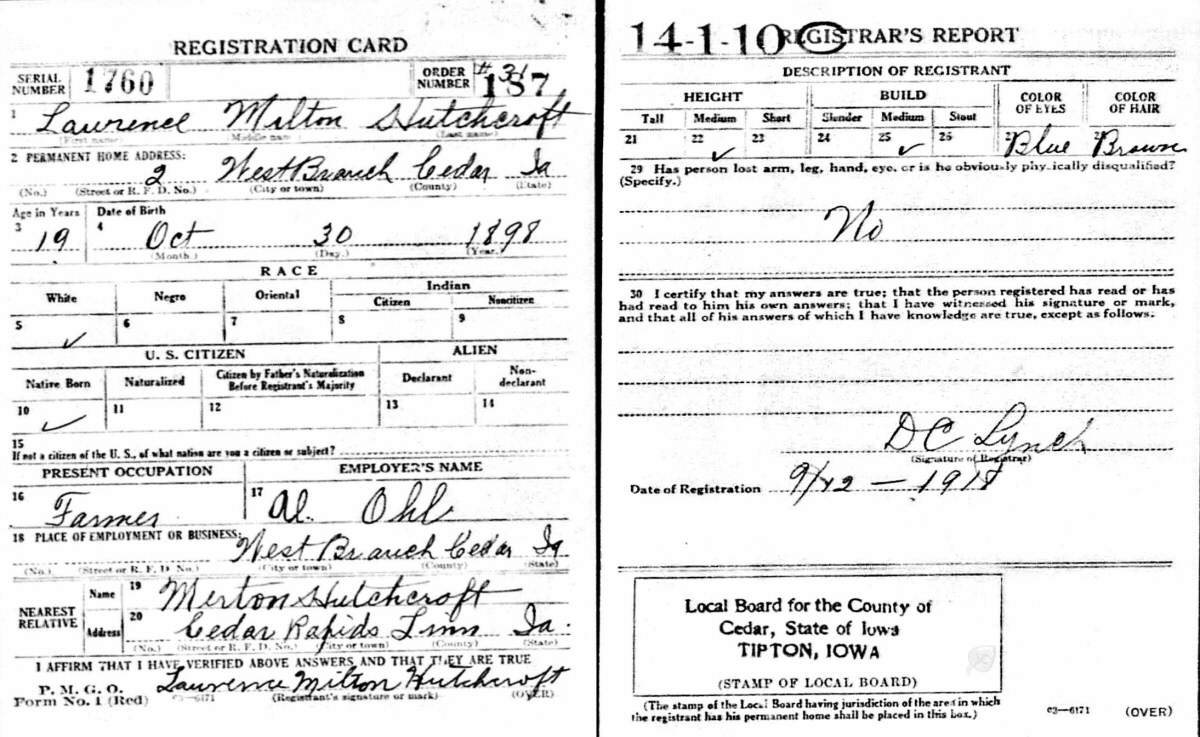 REGISTRATION CARD
SERIAL NUMBER 1760 ORDER NUMBER
1 Lawrence Milton Hutchcroft
(First name) (Middle name) (Last name)
2 PERMANENT HOME ADDRESS:
2 West Branch Cedar Ia
(No.) (Street or R. F. D. No.) (City or town) (County) (State)
Age in Years Date of Birth
3 19 4 Oct 30 1898
(Month.) (Day.) (Year.)
RACE
White Negro Oriental Indian
Citizen Noncitizen
5 ✓ 6 7 8 9
U. S. CITIZEN ALIEN
Native Born Naturalized Citizen by Father's Naturalization Before Registrant's Majority Declarant Non-declarant
10 ✓ 11 12 13 14
15
If not a citizen of the U. S., of what nation are you a citizen or subject?
PRESENT OCCUPATION EMPLOYER'S NAME
16 Farmer 17 Al. Ohl
18 PLACE OF EMPLOYMENT OR BUSINESS:
West Branch Cedar Ia
(No.) (Street or R. F. D. No.) (City or town) (County) (State)
NEAREST RELATIVE Name 19 Merton Hutchcroft
Address 20 Cedar Rapids Linn Ia.
(No.) (Street or R. F. D. No.) (City or town) (County) (State)
I AFFIRM THAT I HAVE VERIFIED ABOVE ANSWERS AND THAT THEY ARE TRUE
P. M. G. O.
Form No. 1 (Red) 03—6171 Lawrence Milton Hutchcroft
(Registrant's signature or mark) (OVER)
14-1-10 C REGISTRAR'S REPORT
DESCRIPTION OF REGISTRANT
HEIGHT BUILD COLOR OF EYES COLOR OF HAIR
Tall Medium Short Slender Medium Stout
21 22 ✓ 23 24 25 ✓ 26 27 Blue 28 Brown
29 Has person lost arm, leg, hand, eye, or is he obviously physically disqualified?
(Specify.)
No
30 I certify that my answers are true; that the person registered has read or has
had read to him his own answers; that I have witnessed his signature or mark,
and that all of his answers of which I have knowledge are true, except as follows:
D C Lynch
(Signature of Registrar)
Date of Registration 9/12 — 1918
Local Board for the County of
Cedar, State of Iowa
TIPTON, IOWA
(STAMP OF LOCAL BOARD)
(The stamp of the Local Board having jurisdiction of the area in which
the registrant has his permanent home shall be placed in this box.)
03—6171 (OVER)